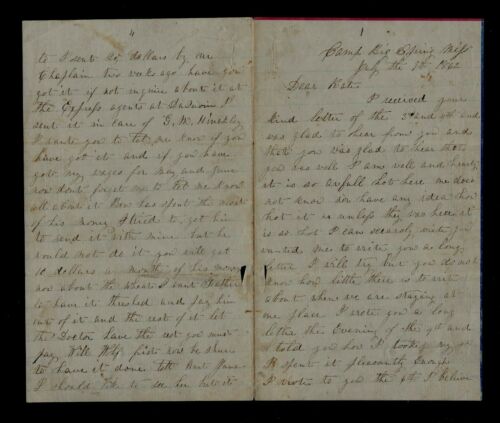 4
to I sent 20 dollars by our
Chaplain two weeks ago have you
got it if not inquire about it at
the Express agents at I
sent it in care of G. W. Hinckley
I want you to let me know if you
have got it and if you have
got my wages for May and June
now dont forget me to let me know
all about it Ben has spent the most
of his money I tried to get him
to send it with mine but he
would not do it you will get
10 dollars a month of his money
now about the wheat I want Father
to have it threshed and pay him
out of it and the rest of it let
the Doctor have the rest you must
pay Will first now be shure
to have it done tell Aunt Jane
I should like to see her but it
1
Camp Big Spring Miss
July the 8th 1862
Dear Kate
I received your
kind letter of the and 4th and
was glad to hear from you and
that you was glad to hear that
you was well I am well and hearty
it is so awfull hot here we does
not know nor have any idea how
hot it is unless they was here it
is so hot I can scarcely write you
wanted me to write you a long
letter I will try but you do not
know how little there is to write
about when we are staying at
one place I wrote you a long
letter the Evening of the 4th and
I told you how I my 4th
I spent it pleasantly Enough
I wrote to you the 6th I believe